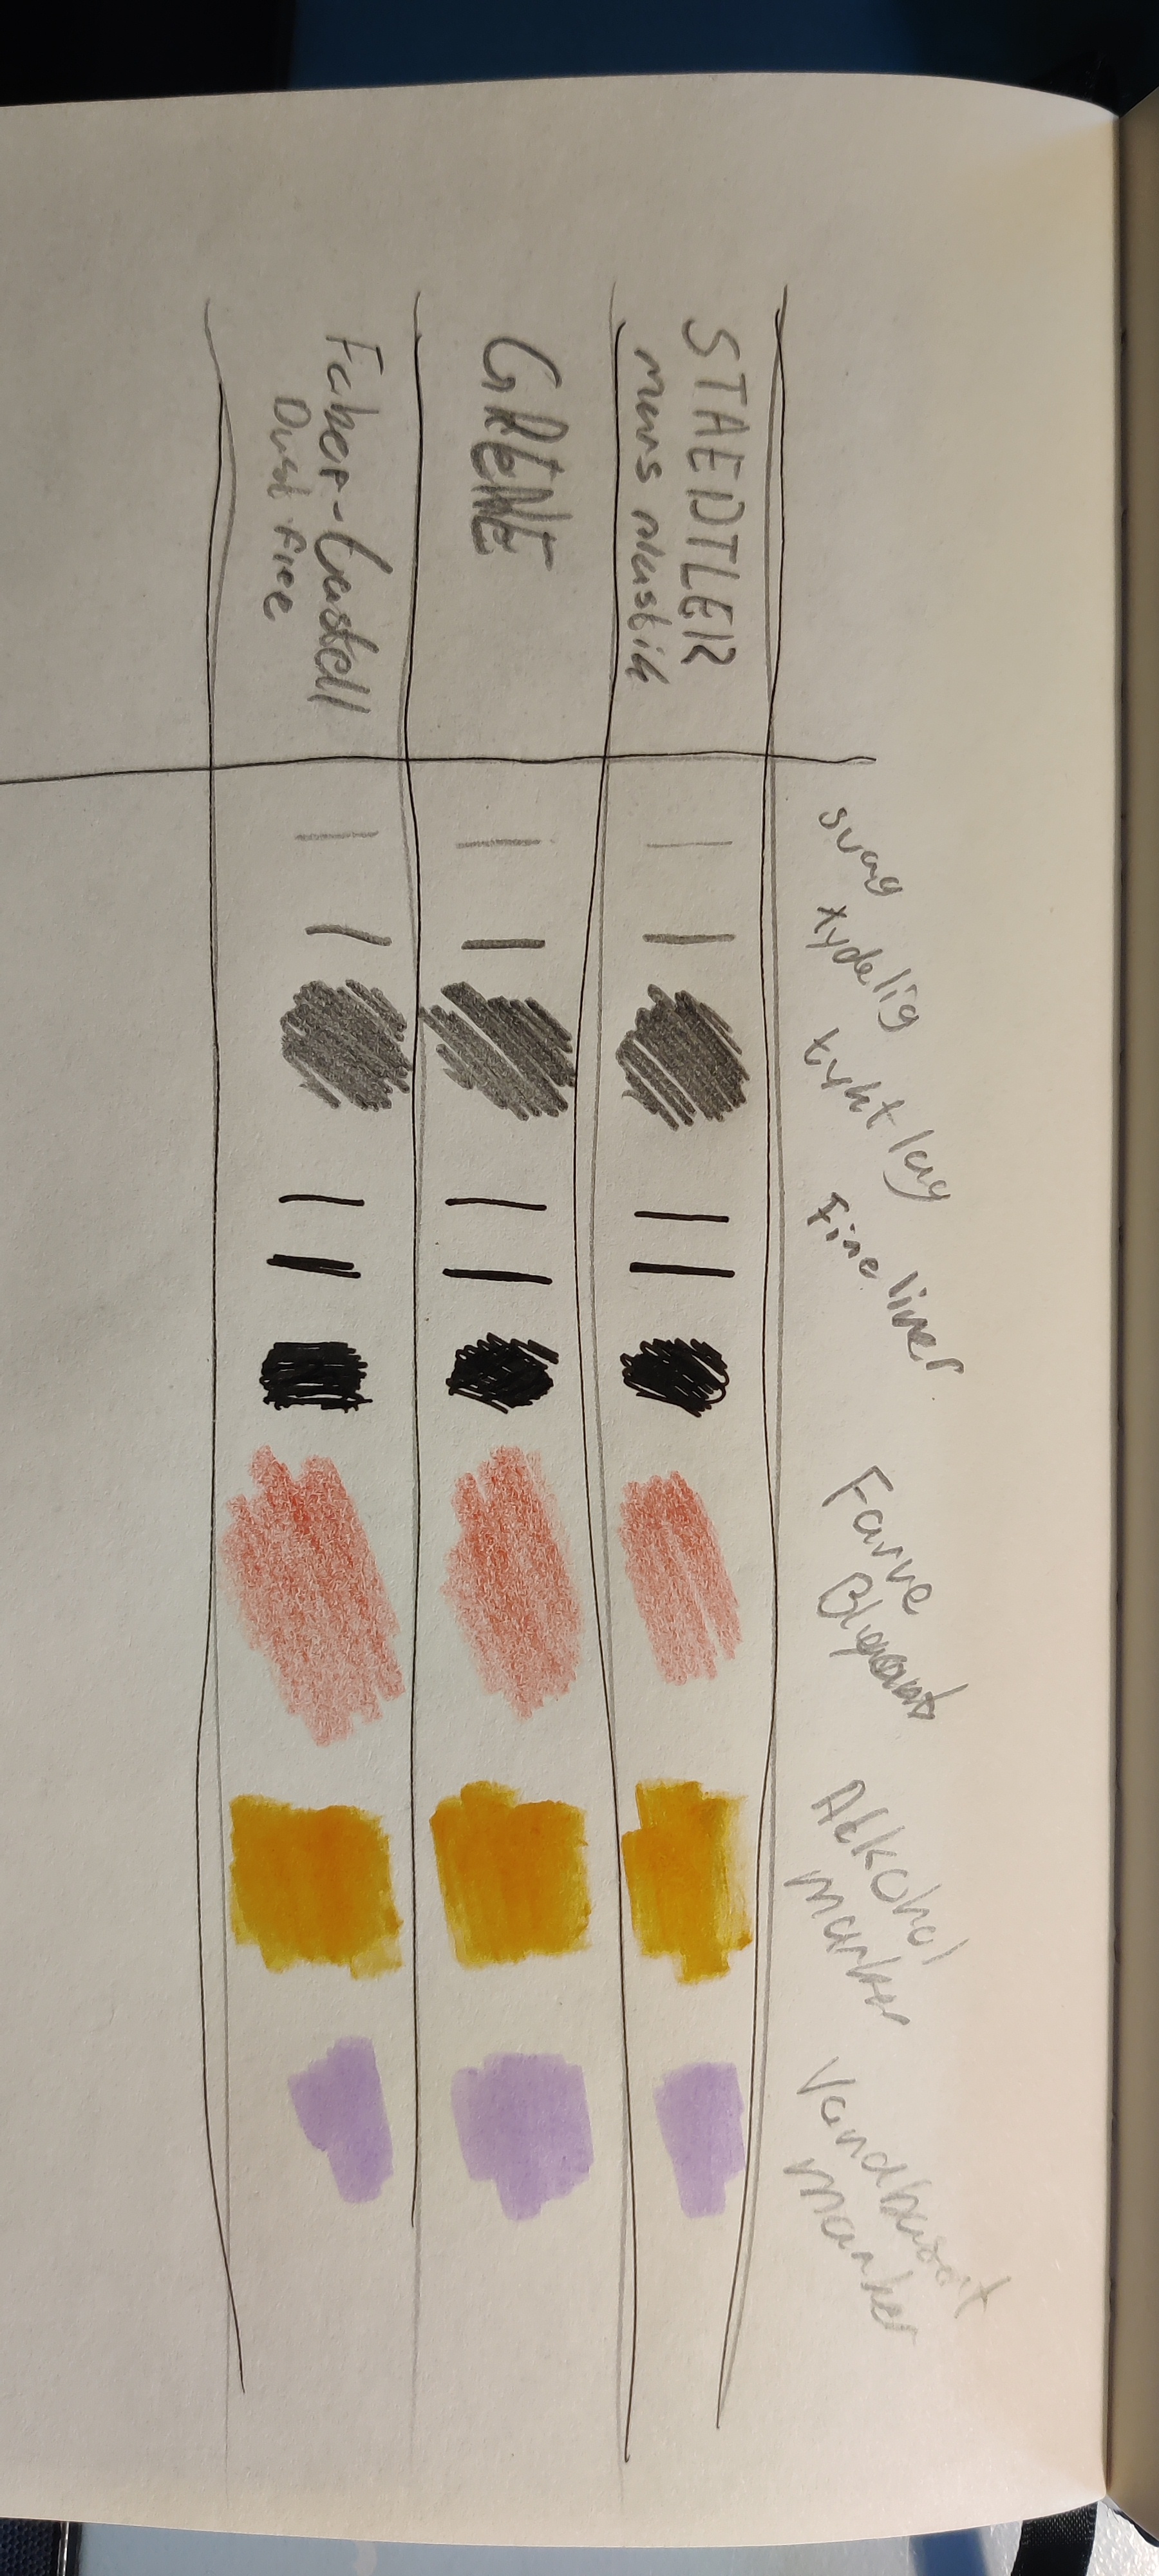 svag
tydelig
tykt lag
Fineliner
Farve
Blyant
Alkohol
marker
Vandbaseret
marker
STAEDTLER
mars plastik
GRENE
Faber-Castell
Dust free